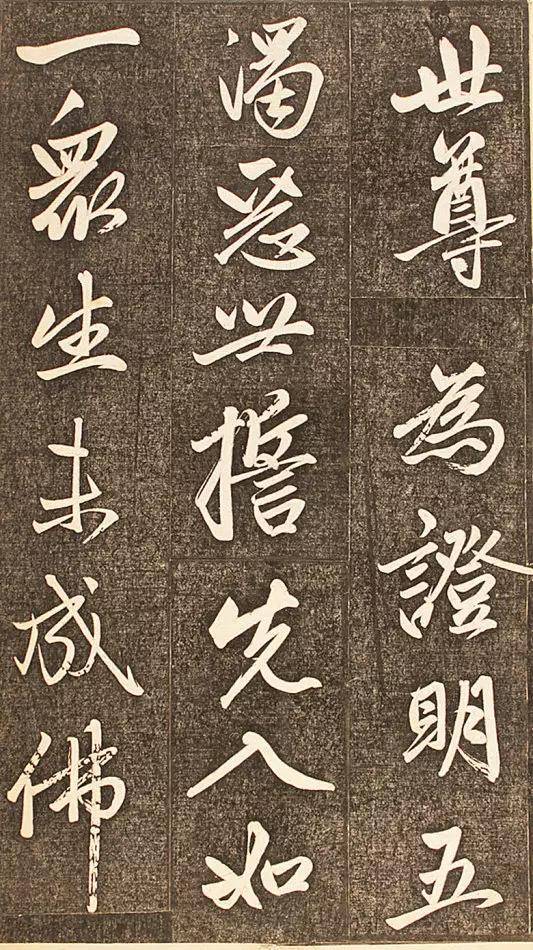 世尊為證明五
濁惡世擔先入如
一衆生未成佛